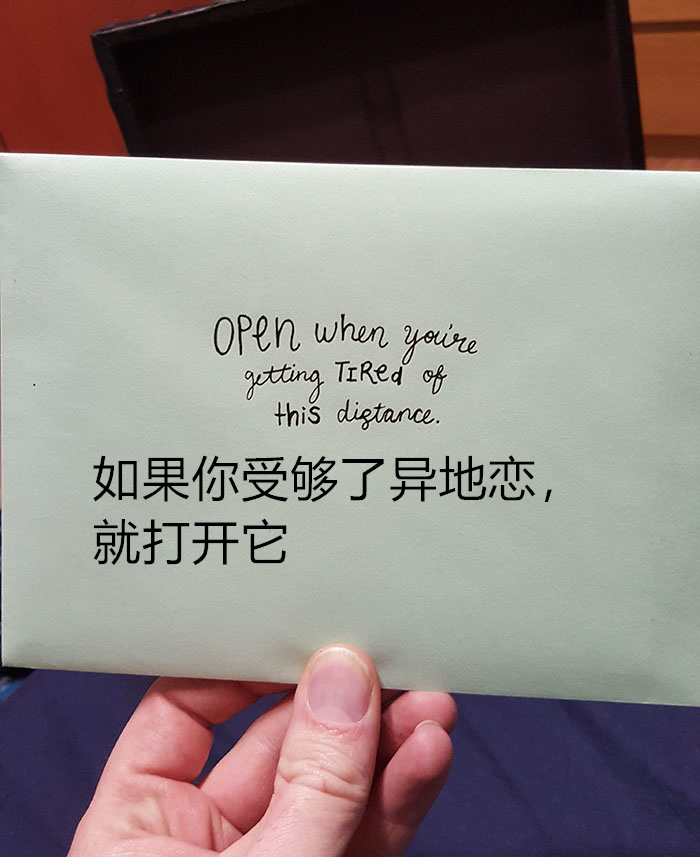 OPEN when you're
getting TIRed of
this distance.
如果你受够了异地恋，
就打开它